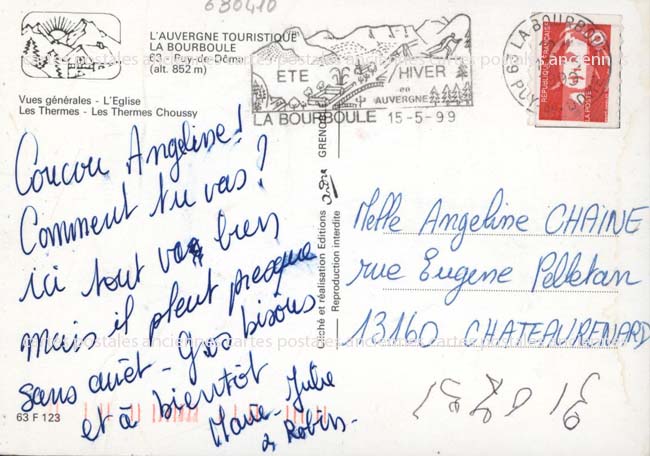 680410
L'AUVERGNE TOURISTIQUE
LA BOURBOULE
63 - Puy-de-Dôme
(alt. 852 m)
Vues générales - L'Eglise
Les Thermes - Les Thermes Choussy
ETE HIVER
en
AUVERGNE
LA BOURBOULE 15-5-99
63 LA BOURBOULE
PUY
REPUBLIQUE FRANÇAISE
LA POSTE
Coucou Angéline!
Comment tu vas?
ici tout va bien
mais il pleut presque
sans arrêt - Gros bisous
et à bientôt
Marie-Julie
& Robin.
63 F 123
Cliché et réalisation Editions André GRENO
Reproduction interdite
Melle Angeline CHAINE
rue Eugene Pelletan
13160 CHATEAURENARD
cartes postales anciennes cartes postales anciennes